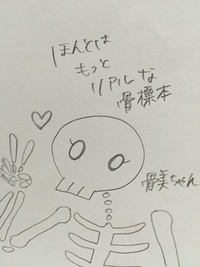 ほんとは
もっと
リアルな
骨標本
骨美ちゃん